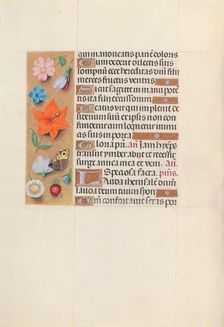 qui manducatis panem doloris
Cum dederit dilectis suis
somnum ecce hereditas domini filii
merces fructus ventris
Sicut sagitte in manu potentis
ita filii excussorum
Beatus vir qui implevit
desiderium suum ex ipsis non
confundetur cum loquetur inimi
cis suis in porta
Gloria patri an Iam hyems
transiit ymber abiit et recessit
surge amica mea et veni an
Speciosa facta ps
Lauda iherusalem dominum
lauda deum tuum syon
Quoniam confortavit seras por